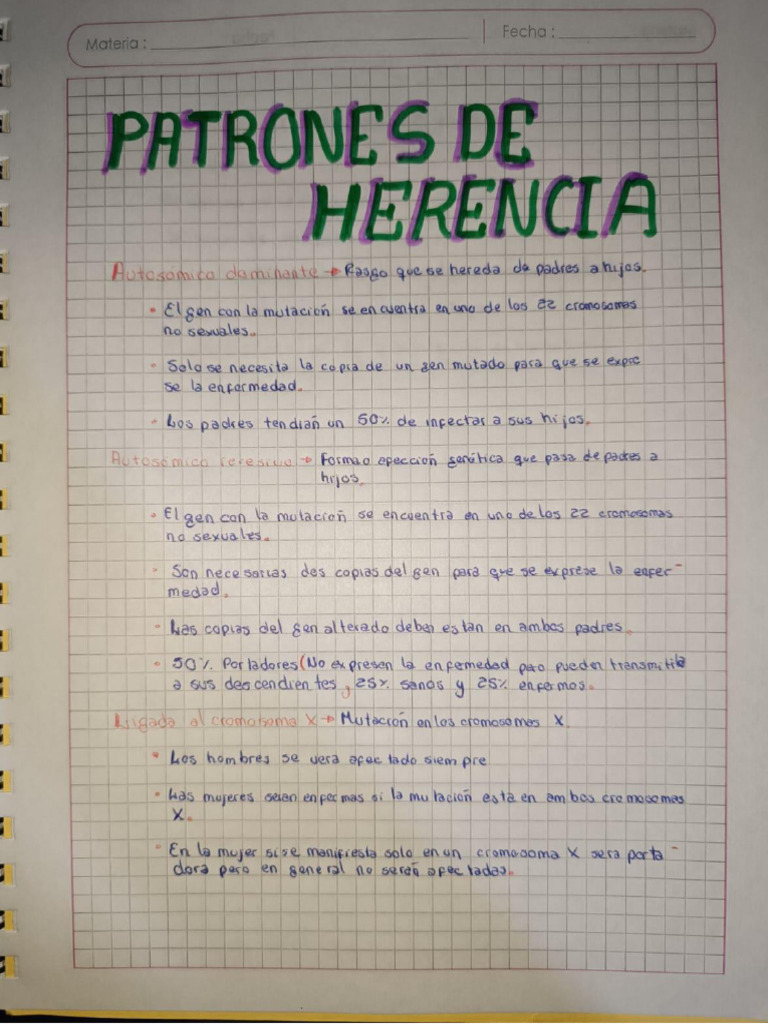 Materia :
Fecha :
PATRONES DE
HERENCIA
Autosómico dominante → Rasgo que se hereda de padres a hijos.
• El gen con la mutación se encuentra en uno de los 22 cromosomas
no sexuales.
• Solo se necesita la copia de un gen mutado para que se expre
se la enfermedad.
• Los padres tendian un 50% de infectar a sus hijos.
Autosomico recesivo → Forma o afección genética que pasa de padres a
hijos.
• El gen con la mutación se encuentra en uno de los 22 cromosomas
no sexuales.
• Son necesarias dos copias del gen para que se exprese la enfer-
medad.
• Las copias del gen alterado deben estan en ambos padres.
• 50% Portadores (No expresen la enfermedad pero pueden transmitila
a sus descendientes, 25% sanos y 25% enfermos.
Ligada al cromosoma X → Mutación en los cromosomas X.
• Los hombres se vera afectado siempre
• Las mujeres seian enfermas si la mutación esta en ambos cromosomas
X.
• En la mujer si se manifiesta solo en un cromosoma X sera porta-
dora pero en general no serán afectadas.